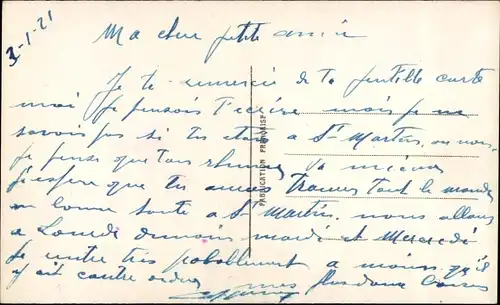 3-1-21
Ma chère petite amie
Je te remercie de ta gentille carte
moi je pensais t'écrire mais je ne
savais pas si tu étais a St Martin, ou non,
je pense que ton rhume va mieux
j'espère que tu auras trouvé tout le monde
en bonne santé a St Martin, nous allons
a demain mardi et Mercredi
je rentre très probablement a moins qu'il
y ait contre ordre mes plus doux
FABRICATION FRANÇAISE